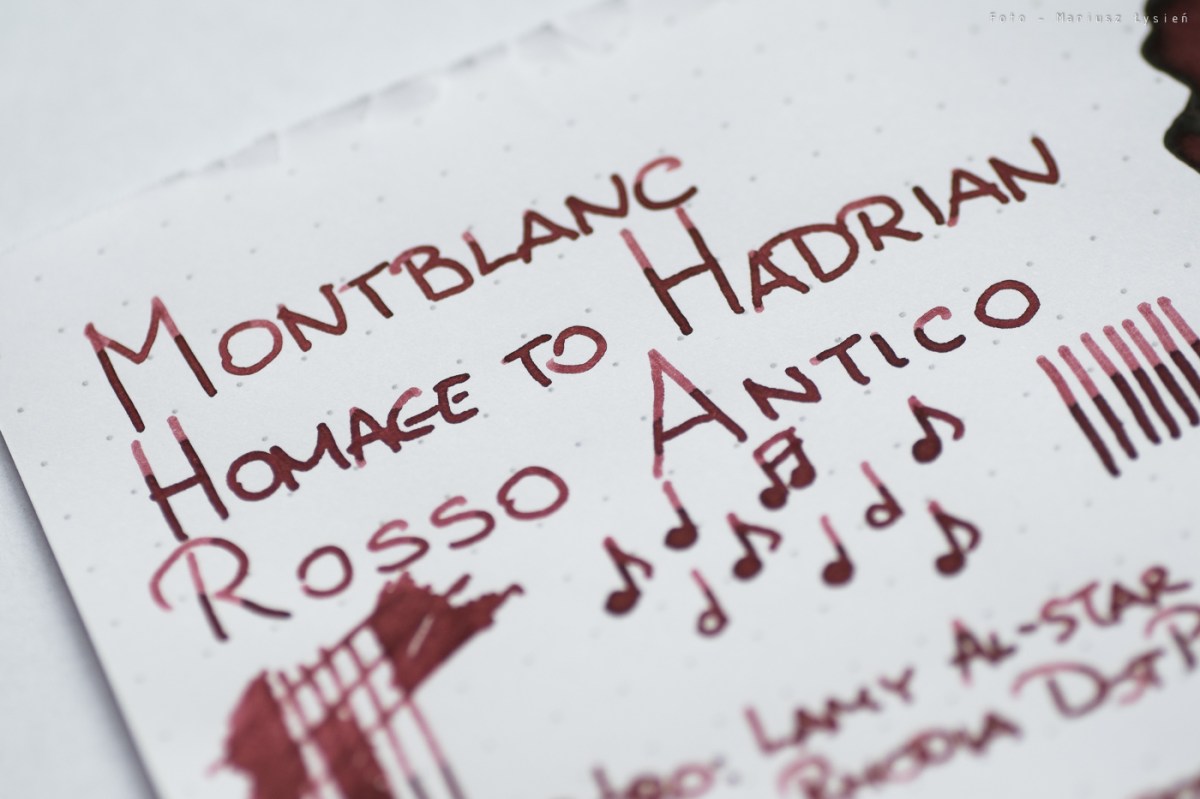 Foto - Mariusz Łysień
MONTBLANC
HOMAGE TO HADRIAN
ROSSO ANTICO
LAMY AL-STAR
RHODIA DOT P